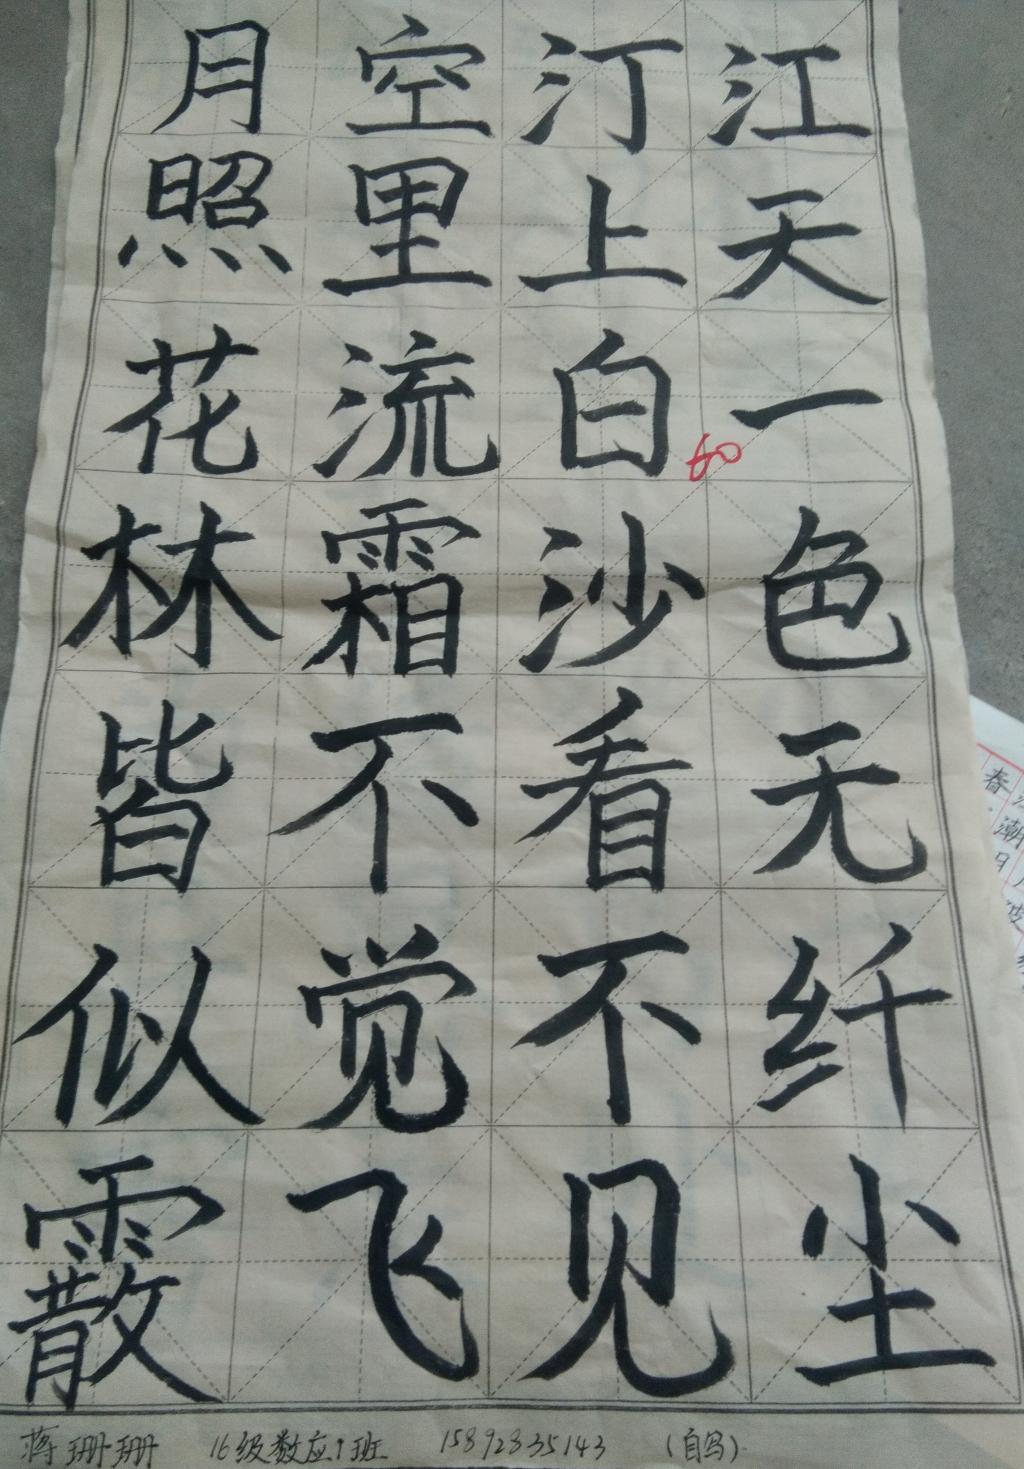 江天一色无纤尘
汀上白沙看不见
空里流霜不觉飞
月照花林皆似霰
60
蒋珊珊 16级数应1班 15892835143 (自写)